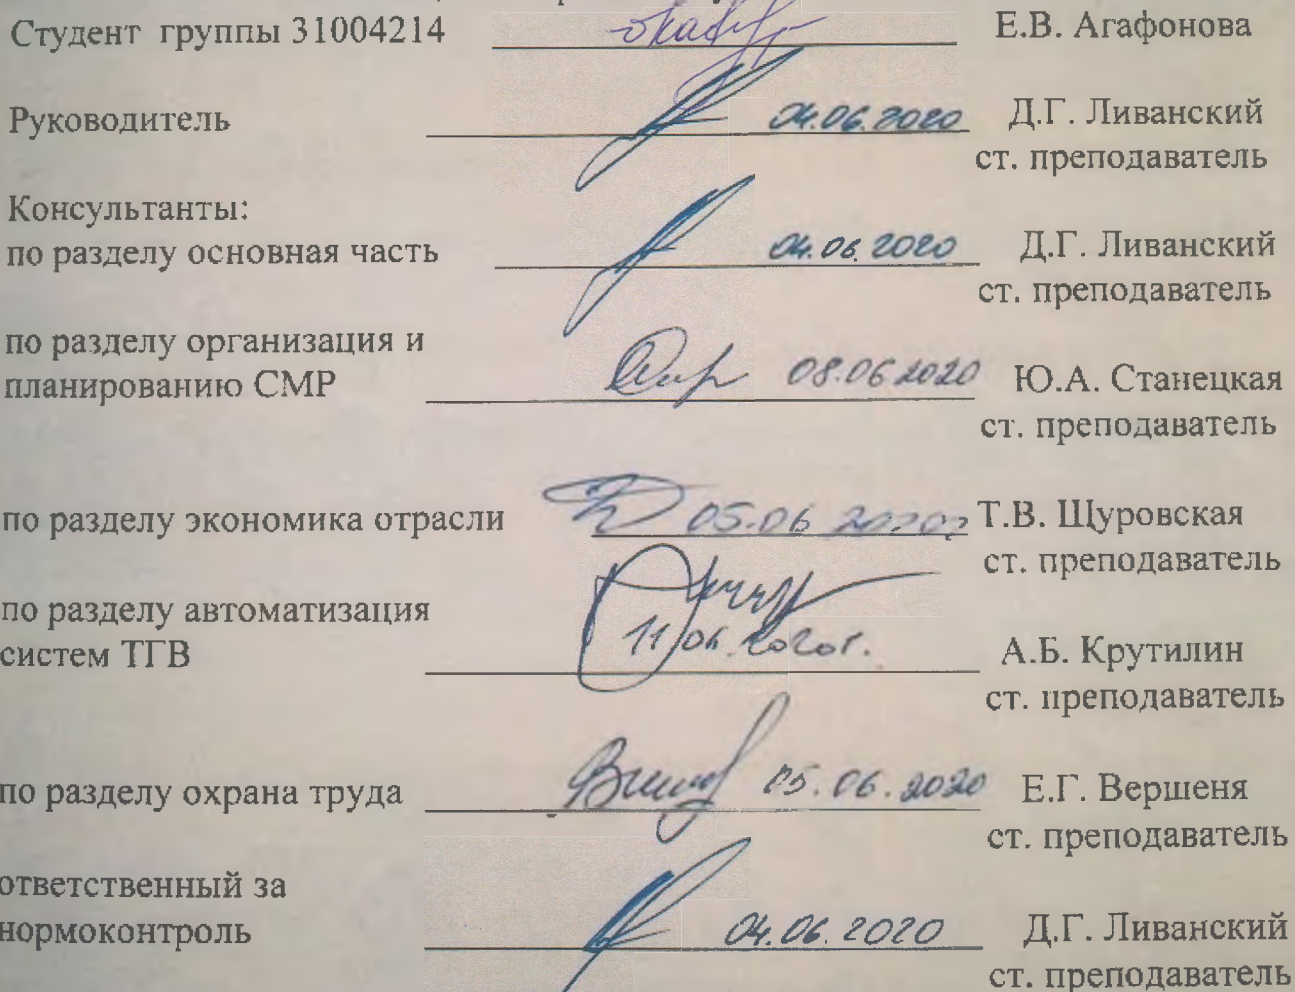 Студент группы 31004214 Е.В. Агафонова
Руководитель 04.06.2020 Д.Г. Ливанский
ст. преподаватель
Консультанты:
по разделу основная часть 04.06.2020 Д.Г. Ливанский
ст. преподаватель
по разделу организация и
планированию СМР 08.06.2020 Ю.А. Станецкая
ст. преподаватель
по разделу экономика отрасли 05.06.2020г Т.В. Щуровская
ст. преподаватель
по разделу автоматизация
систем ТГВ 11.06.2020г. А.Б. Крутилин
ст. преподаватель
по разделу охрана труда 05.06.2020 Е.Г. Вершеня
ст. преподаватель
ответственный за
нормоконтроль 04.06.2020 Д.Г. Ливанский
ст. преподаватель